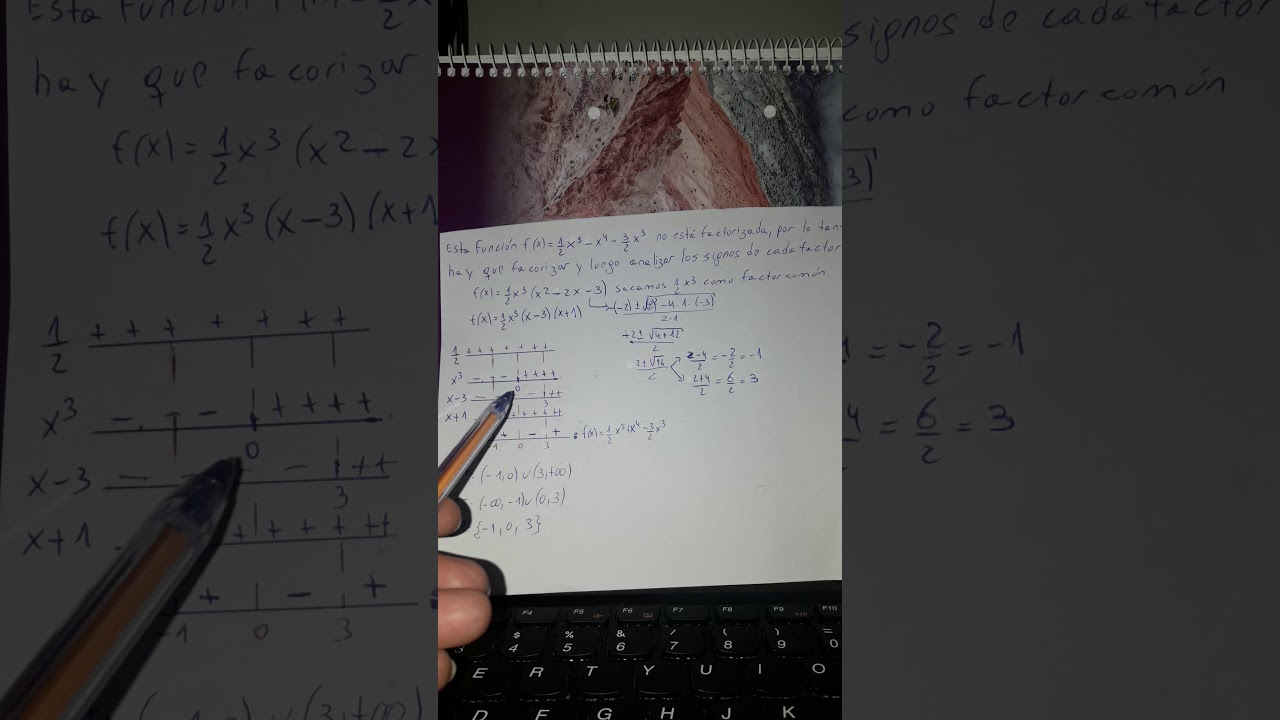 Esta función f(x) = 1/2 x^5 - x^4 - 3/2 x^3 no está factorizada, por lo tan-
hay que facorizar y luego analizar los signos de cada factor
f(x) = 1/2 x^3 (x^2 - 2x - 3) sacamos 1/2 x^3 como factor común
f(x) = 1/2 x^3 (x-3) (x+1)
2·1
+2 ± √4+12
2
2 ± √16
2
2-4/2 = -2/2 = -1
2+4/2 = 6/2 = 3
1/2 + + + + + + +
x^3 - - - + + + +
0
x-3 - - + +
3
x+1 + + + + +
+ - +
-1 0 3
f(x) = 1/2 x^5 + x^4 - 3/2 x^3
(-1, 0) ∪ (3, +∞)
(-∞, -1) ∪ (0, 3)
{-1, 0, 3}
F4 F5 F6 F7 F8 F9 F10
$ % & / ( ) =
4 5 6 7 8 9 0
E R T Y U I O
D F G H J K